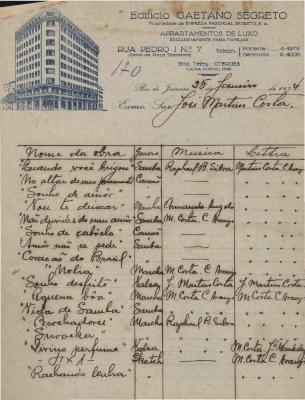 Edificio CAETANO SEGRETO
Propriedade da EMPREZA PASCHOAL SEGRETO, S. A.
APPARTAMENTOS DE LUXO
EXCLUSIVAMENTE PARA FAMILIAS
RUA PEDRO I N.º 7
Teleph. Portaria
Gerencia
End. Teleg.
Rio de Janeiro, 25 Janeiro de 19
Exmo. Snr. José Martins Costa.
Nome da obra Genero Musica Lettra
"Quando você brigou" Samba Raphael B. Silva Martins Costa C. Araujo
"No altar do meu pensamento" Canção
"Sonho de amor"
"Não te deixar" Marcha
"Não duvides do meu amor" Samba M. Costa C. Araujo
"Sonho de caboclo" Canção
"Amor não se pede" Samba
"Coração do Brasil"
"Molia" Marcha M. Costa C. Araujo
"Sonho desfeito" Valsa J. Martins Costa J. Martins Costa
"Pequena bôa" Marcha M. Costa C. Araujo M. Costa C. Araujo
"Vida de Samba" Samba
Marcha Raphael B. Silva
"Divino perfume" Valsa M. Costa
Sketch M. Costa C. Araujo
"Rachando lenha"